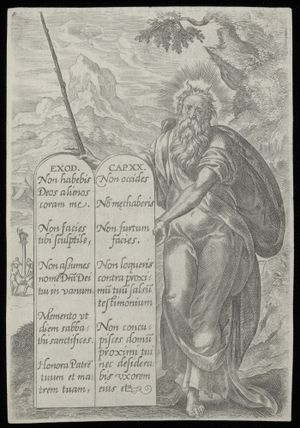 EXOD.
Non habebis
Deos alienos
coram me.
Non facies
tibi sculptile,
Non assumes
nomē Dnī Dei
tui in vanum.
Memento vt
diem sabba-
thi sanctifices.
Honora Patrē
tuum et ma-
trem tuam,
CAP.XX.
Non occides
Nō mechaberis
Non furtum
facies.
Non loqueris
contra proxi-
mū tuū falsū
testimonium
Non concu-
pisces domū
proximi tui
nec desidera-
bis vxorem
eius etc